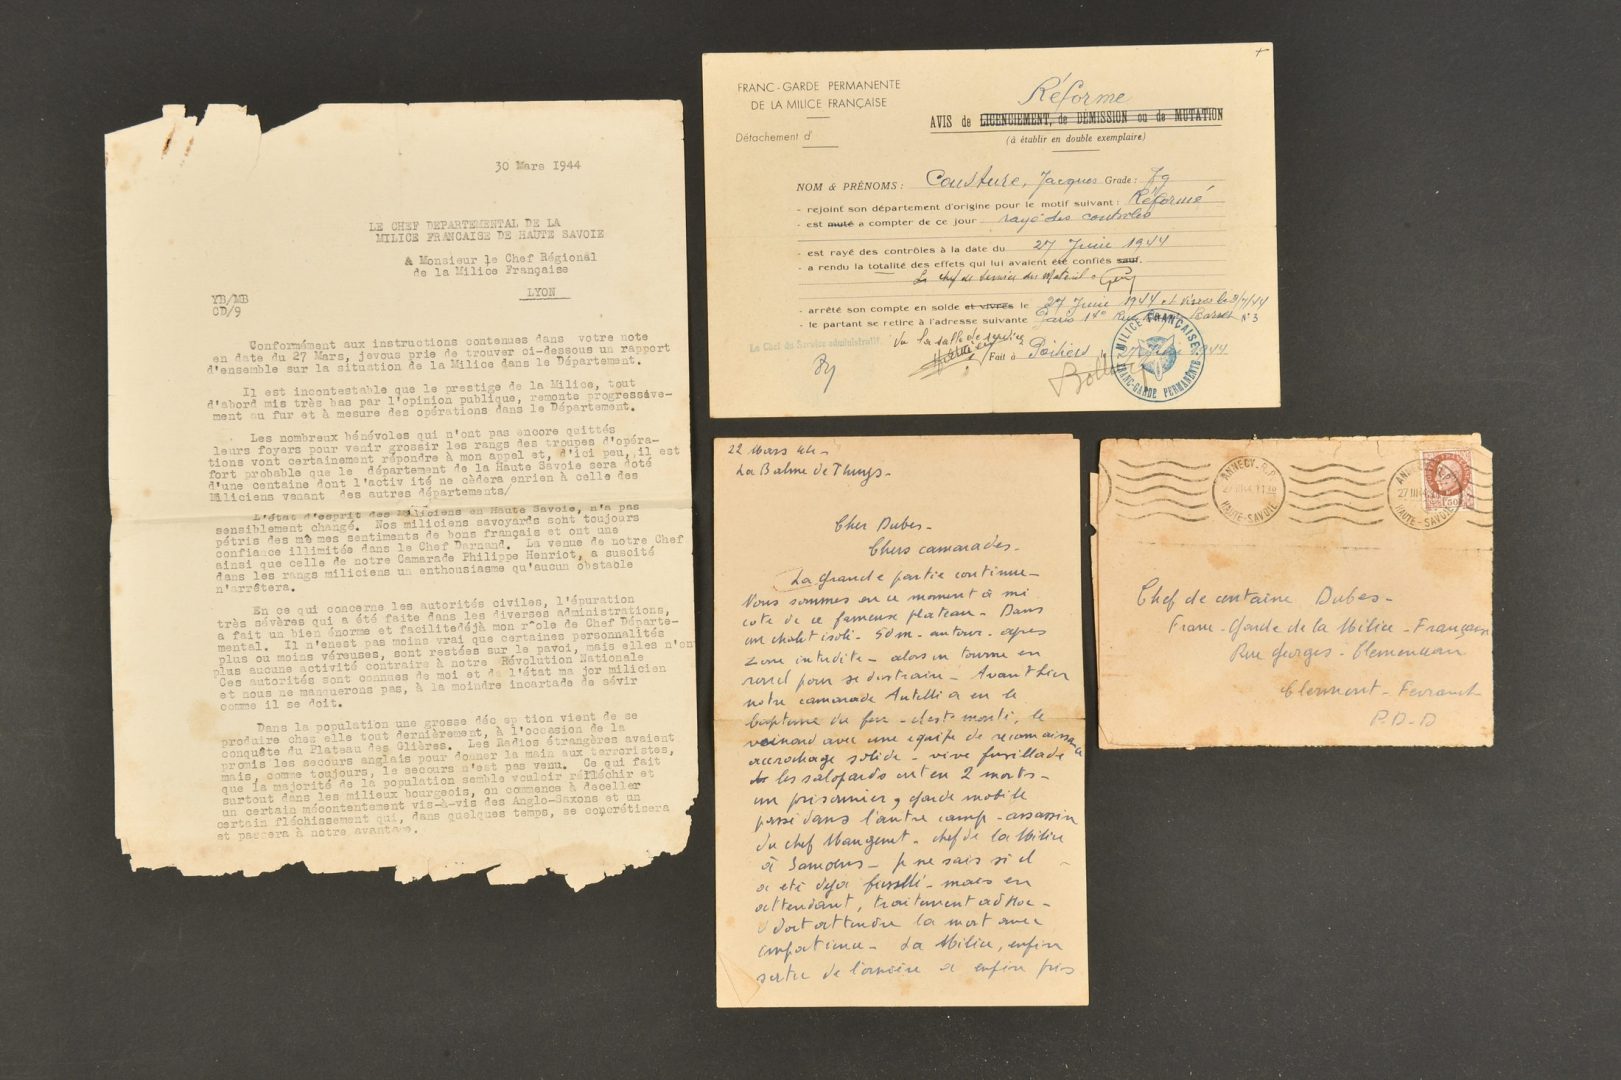 30 Mars 1944
LE CHEF DEPARTEMENTAL DE LA
MILICE FRANCAISE DE HAUTE SAVOIE
A Monsieur le Chef Régional
de la Milice Française
LYON
YB/MB
CD/9
Conformément aux instructions contenues dans votre note
en date du 27 Mars, jevous prie de trouver ci-dessous un rapport
d'ensemble sur la situation de la Milice dans le Département.
Il est incontestable que le prestige de la Milice, tout
d'abord mis très bas par l'opinion publique, remonte progressive-
ment au fur et à mesure des opérations dans le Département.
Les nombreux bénévoles qui n'ont pas encore quittés
leurs foyers pour venir grossir les rangs des troupes d'opéra-
tions vont certainement répondre à mon appel et, d'ici peu, il est
fort probable que le département de la Haute Savoie sera doté
d'une centaine dont l'activ ité ne cèdera enrien à celle des
Miliciens venant des autres départements/
L'état d'esprit des Miliciens en Haute Savoie, n'a pas
sensiblement changé. Nos miliciens savoyards sont toujours
pétris des mê mes sentiments de bons français et ont une
confiance illimitée dans le Chef Darnand. La venue de notre Chef
ainsi que celle de notre Camarade Philippe Henriot, a suscité
dans les rangs miliciens un enthousiasme qu'aucun obstacle
n'arrêtera.
En ce qui concerne les autorités civiles, l'épuration
très sévères qui a été faite dans les diverses administrations,
a fait un bien énorme et facilitedéjà mon r^ole de Chef Départe-
mental. Il n'enest pas moins vrai que certaines personnalités
plus ou moins véreuses, sont restées sur le pavoi, mais elles n'ont
plus aucune activité contraire à notre Révolution Nationale
Ces autorités sont connues de moi et de l'état ma jor milicien
et nous ne manquerons pas, à la moindre incartade de sévir
comme il se doit.
Dans la population une grosse déc ep tion vient de se
produire chez elle tout dernièrement, à l'occasion de la
conquête du Plateau des Glières. Les Radios étrangères avaient
promis les secours anglais pour donner la main aux terroristes,
mais, comme toujours, le secours n'est pas venu. Ce qui fait
que la majorité de la population semble vouloir réfléchir et
surtout dans les milieux bourgeois, on commence à deceller
un certain mécontentement vis-à-vis des Anglo-Saxons et un
certain fléchissement qui, dans quelques temps, se concrétisera
et passera à notre avantage.
FRANC-GARDE PERMANENTE
DE LA MILICE FRANÇAISE
Détachement d'
Réforme
AVIS de LICENCIEMENT, de DÉMISSION ou de MUTATION
(à établir en double exemplaire)
NOM & PRÉNOMS : Jacques Grade :
- rejoint son département d'origine pour le motif suivant : Réformé
- est muté a compter de ce jour rayé des contrôles
- est rayé des contrôles à la date du 27 Juin 1944
- a rendu la totalité des effets qui lui avaient été confiés sauf.
Le chef de service du Matériel
- arrêté son compte en solde et vivres le 27 Juin 1944 et vivres le
- le partant se retire à l'adresse suivante Paris 14e Rue N°3
Le Chef du Service administratif.
Fait à Poitiers 1944
MILICE FRANÇAISE
FRANC-GARDE PERMANENTE
22 Mars 44-
La Balme de Thuys-
Cher Dubes-
Chers camarades-
La grande partie continue-
Nous sommes en ce moment à mi
cote de ce fameux plateau- Dans
un chalet isolé- 50m- autour- après
zone interdite- alors on tourne en
rond pour se distraire- Avant hier
notre camarade a eu le
baptême du feu- monté, le
avec une équipe de reconnaissance
accrochage solide- vive fusillade
les salopards ont eu 2 morts-
un prisonnier, garde mobile
passé dans l'autre camp- assassin
du chef - chef de la Milice
à Samoëns- je ne sais si il
a été déjà fusillé- mais en
attendant, traitement ad Hoc-
Doit attendre la mort avec
impatience- La Milice, enfin
sortie de l'ornière a enfin pris
ANNECY-R.P.
27 III 44
HAUTE-SAVOIE
HAUTE-SAVOIE
Chef de centaine Dubes-
Franc-Garde de la Milice-Française
Rue Georges-Clemenceau
Clermont-Ferrand
P.D.D